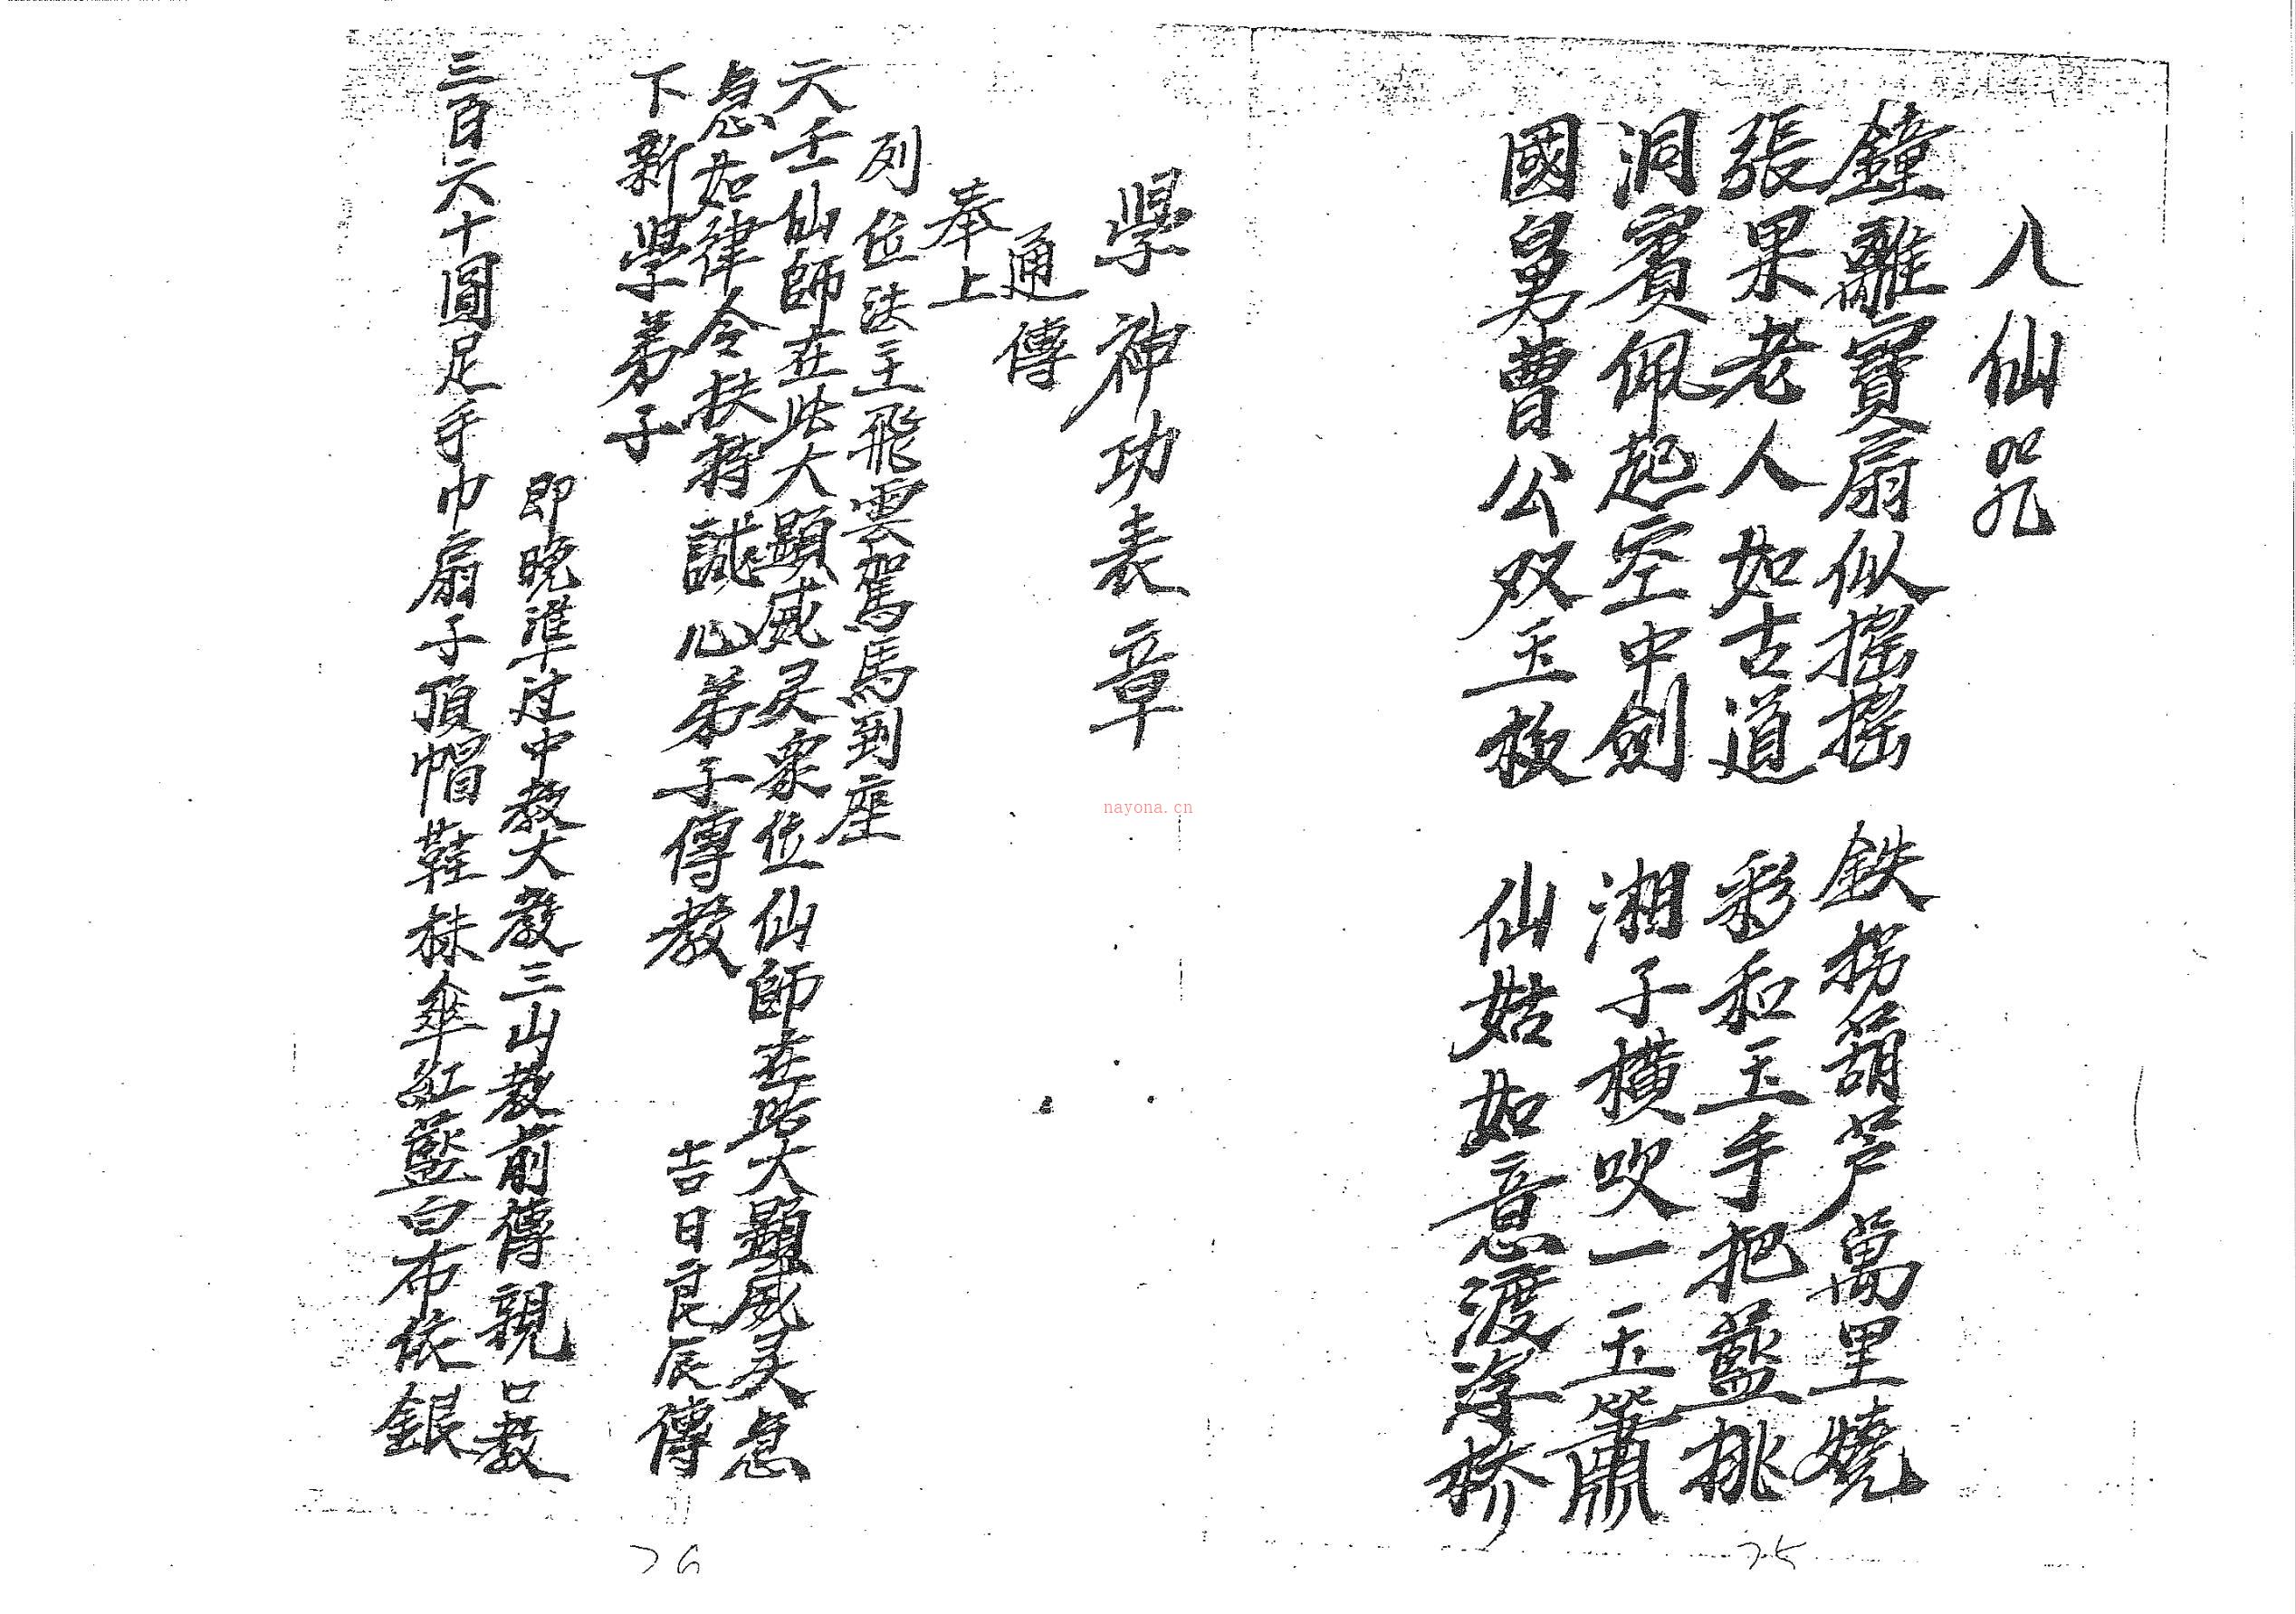 八仙咒
鐘離寶扇似搖搖　鉄拐葫芦萬里燒
張果老人如古道　彩和玉手把藍挑
洞賓佩起空中劍　湘子橫吹一玉簫
國舅曹公双玉板　仙姑如意渡浮橋
25
學神功表章
通傳
奉上
列位法主飛雲駕馬到座
六壬仙師在此大顕威灵眾位仙師在此大顕威灵急
急如律令扶持誠心弟子傳教　吉日良辰傳
下新學弟子
即晚準过中教大教三山教前傳親口教
三百六十圓足手巾扇子頂帽鞋袜傘紅藍白布依銀
26
nayona.cn